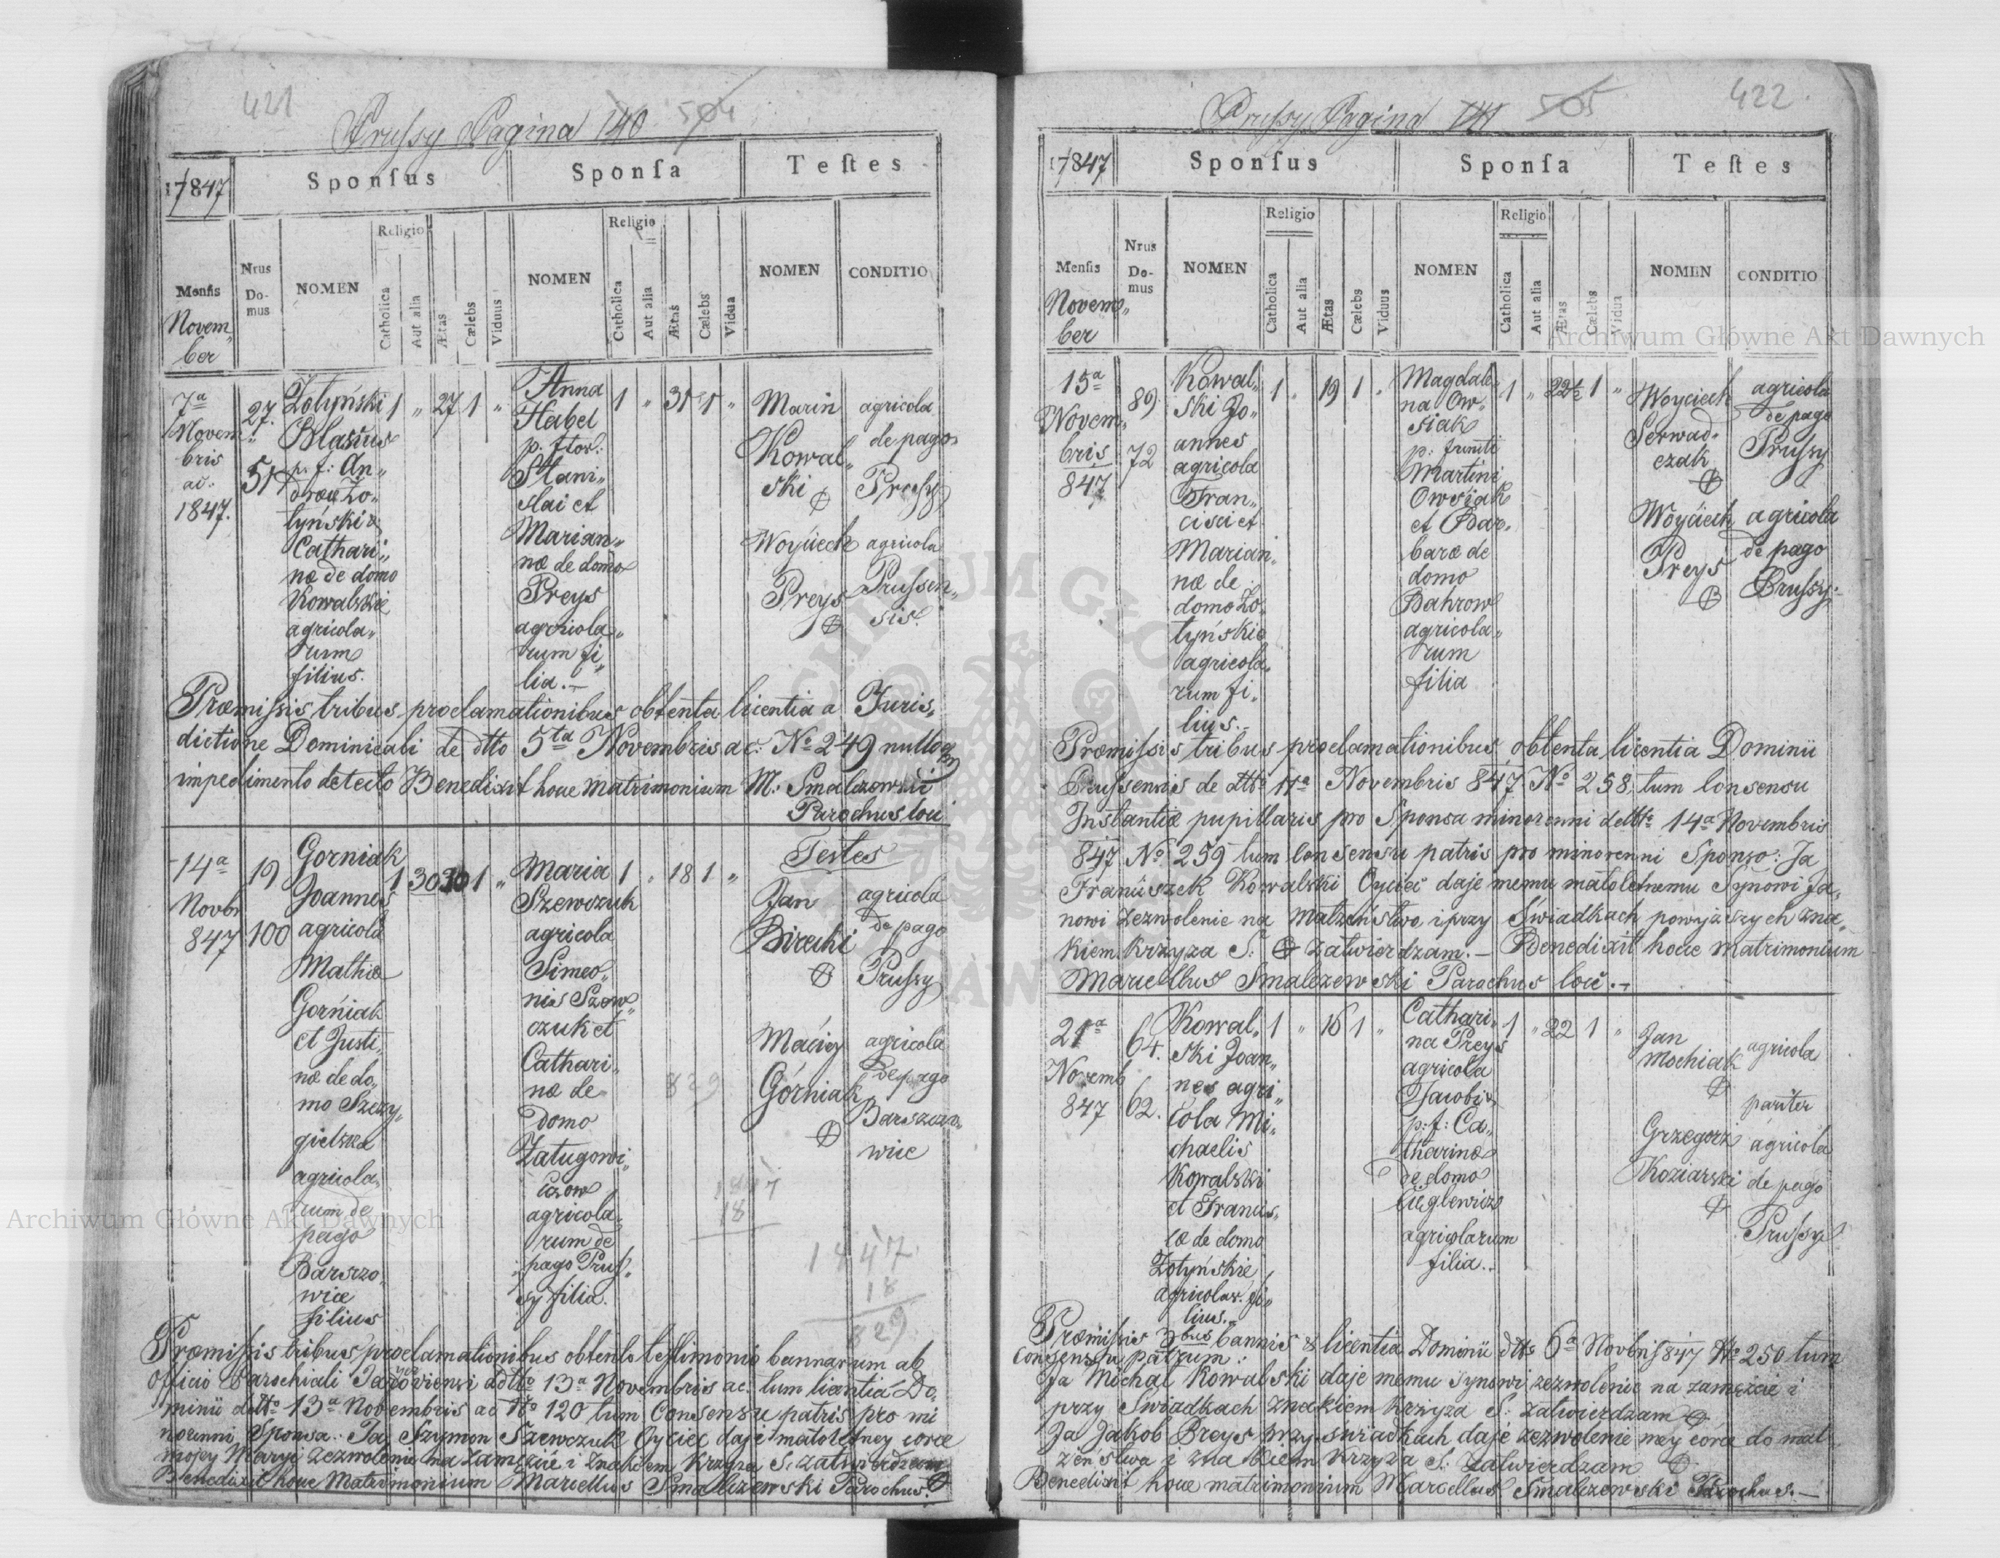 421
Prussy Pagina 140 504
17847
Sponſus
Sponſa
Teſtes
Menſis
Novem„
ber
Nrus
Do-
mus
NOMEN
Religio
Catholica
Aut alia
Ætas
Cælebs
Viduus
NOMEN
Religio
Catholica
Aut alia
Ætas
Cælebs
Vidua
NOMEN
CONDITIO
7a
Novem„
bris
ac.
1847.
27.
51
Zołyński
Blasius
p. f: An„
dreæ Zo„
łyński &
Cathari„
næ de domo
Kowalskie
agricola„
rum
filius.
1 „ 27 1 „
Anna
Habel
Stani„
slai et
Marian„
næ de domo
Preys
agricola„
rum fi„
lia.–
1 „ 31 1 „
Marin
Kowal„
ski
agricola
de pago
Prussy
Woyciech
Preys
agricola
Prussen„
sis.
Præmissis tribus proclamationibus obtenta licentia a Juris„
dictione Dominicali de dtto 5ta Novembris ac: No 249 nulloq
impedimento detecto Benedixit hocce matrimonium M. Smalczewski
Parochus loci
14a
Novbr
847
19
100
Gorniak
Joannes
agricola
Mathiæ
Gorniak
et Justi„
næ de do„
mo Szczy„
gielska
agricola„
rum de
pago
Barszo„
wice
filius
1 30 30 1 „
Maria
Szewczuk
agricola
Simeo„
nis Szew„
czuk et
Cathari„
næ de
domo
Zatugowi„
czow
agricola„
rum de
pago Prus„
sy filia.
1 „ 18 1 „
Testes
Jan
Birecki
agricola
de pago
Prussy
Maciey
Górniak
agricola
de pago
Barszczo„
wice
829
1847
18
1847
18
829
Præmissis tribus proclamationibus obtento testimonio bannarum ab
officio Parochiali Jaryoviensi ddtto 13a Novembris ac. tum licentia Do„
minii dtto 13a Novembris ac No 120 tum Consensu patris pro mi
norenni Sponsa: Ja Szymon Szewczuk Oyciec daje małoletney corce
mojey Maryi zezwolenie na zamęście i znakiem Krzyża S. zatwierdzam
Benedixit hocce matrimonium Marcellus Smalczewski Parochus.
422.
Prussy Pagina 141 505
17847
Sponſus
Sponſa
Teſtes
Menſis
Novem„
ber
Nrus
Do-
mus
NOMEN
Religio
Catholica
Aut alia
Ætas
Cælebs
Viduus
NOMEN
Religio
Catholica
Aut alia
Ætas
Cælebs
Vidua
NOMEN
CONDITIO
15a
Novem„
bris
847
89
72
Kowal„
ski Jo„
annes
agricola
Fran„
cisci et
Marian„
næ de
domo Zo„
łyńskie
agricola„
rum fi„
lius.–
1 „ 19 1 „
Magdale„
na Ow„
siak
Martini
Owsiak
et Bar„
baræ de
domo
Bahrow
agricola„
rum
filia
1 „ 22½ 1 „
Woyciech
Serwad„
czak
agricola
de pago
Prussy
Woyciech
Preys
agricola
de pago
Prussy.
Præmissis tribus proclamationibus, obtenta licentia Dominii
Prussensis de dtto 11a Novembris 847 No 258, tum Consensu
Instantiæ pupillaris pro Sponsa minorenni dedtto 14a Novembris
847 No 259 tum Consensu patris pro minorenni Sponso: Ja
Franciszek Kowalski Oyciec daje memu małoletnemu Synowi Ja„
nowi zezwolenie na małzeństwo i przy Świadkach powyższych zna„
kiem krzyża S: zatwierdzam.– Benedixit hocce matrimonium
Marcellus Smalczewski Parochus loci.–
21a
Novemb
847
64.
62.
Kowal„
ski Joan„
nes agri„
cola Mi„
chaelis
Kowalski
et Francis„
cæ de domo
Zołyńskie
agricolar. fi„
lius.–
1 „ 16 1 „
Cathari„
na Preys
agricola
Jacobi &
p: f: Ca„
tharinæ
de domo
Cieglewicz
agricolarum
filia..
1 „ 22 1 „
Jan
Mochiak
agricola
Grzegorz
Koziarski
pariter
agricola
de pago
Prussy.
Præmissis 3bus bannis & licentia Dominii dtto 6a Novbris 847 No 250 tum
Consensu patrum:
Ja Michał Kowalski daje memu synowi zezwolenie na zamęście i
przy Świadkach znakiem krzyża S. zatwierdzam
Ja Jakób Preys przy świadkach daje zezwolenie mey córce do mał„
żeństwa i znakiem krzyża S: zatwierdzam
Benedixit hocce matrimonium Marcellus Smalczewski Parochus.–
Archiwum Główne Akt Dawnych
Archiwum Główne Akt Dawnych